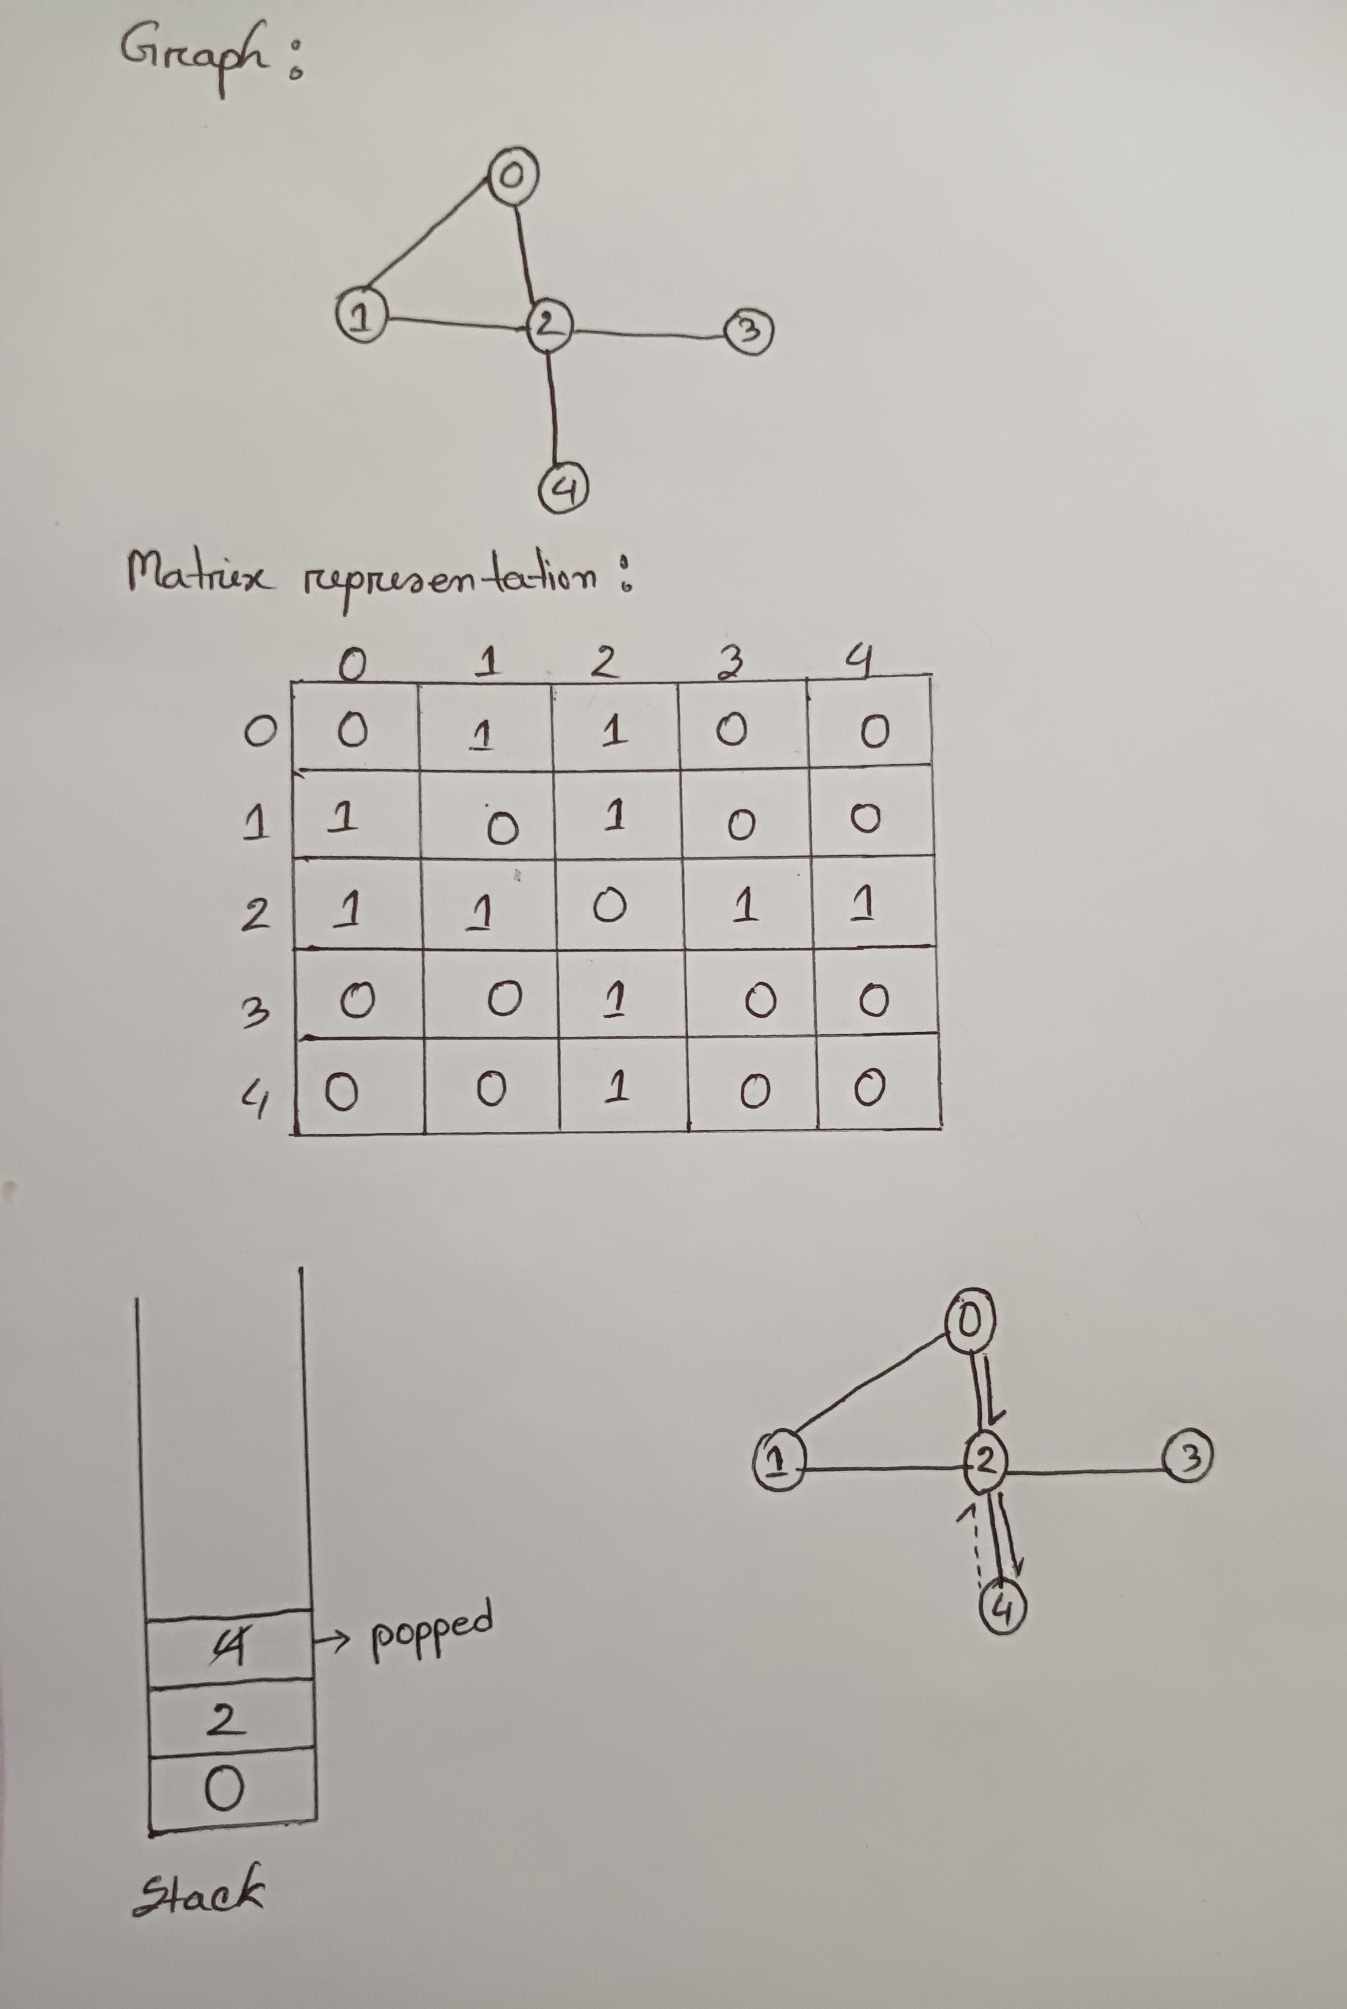 Graph :
0
1 2 3
4
Matrix representation :
0 1 2 3 4
0 0 1 1 0 0
1 1 0 1 0 0
2 1 1 0 1 1
3 0 0 1 0 0
4 0 0 1 0 0
0
1 2 3
4
4 → popped
2
0
Stack